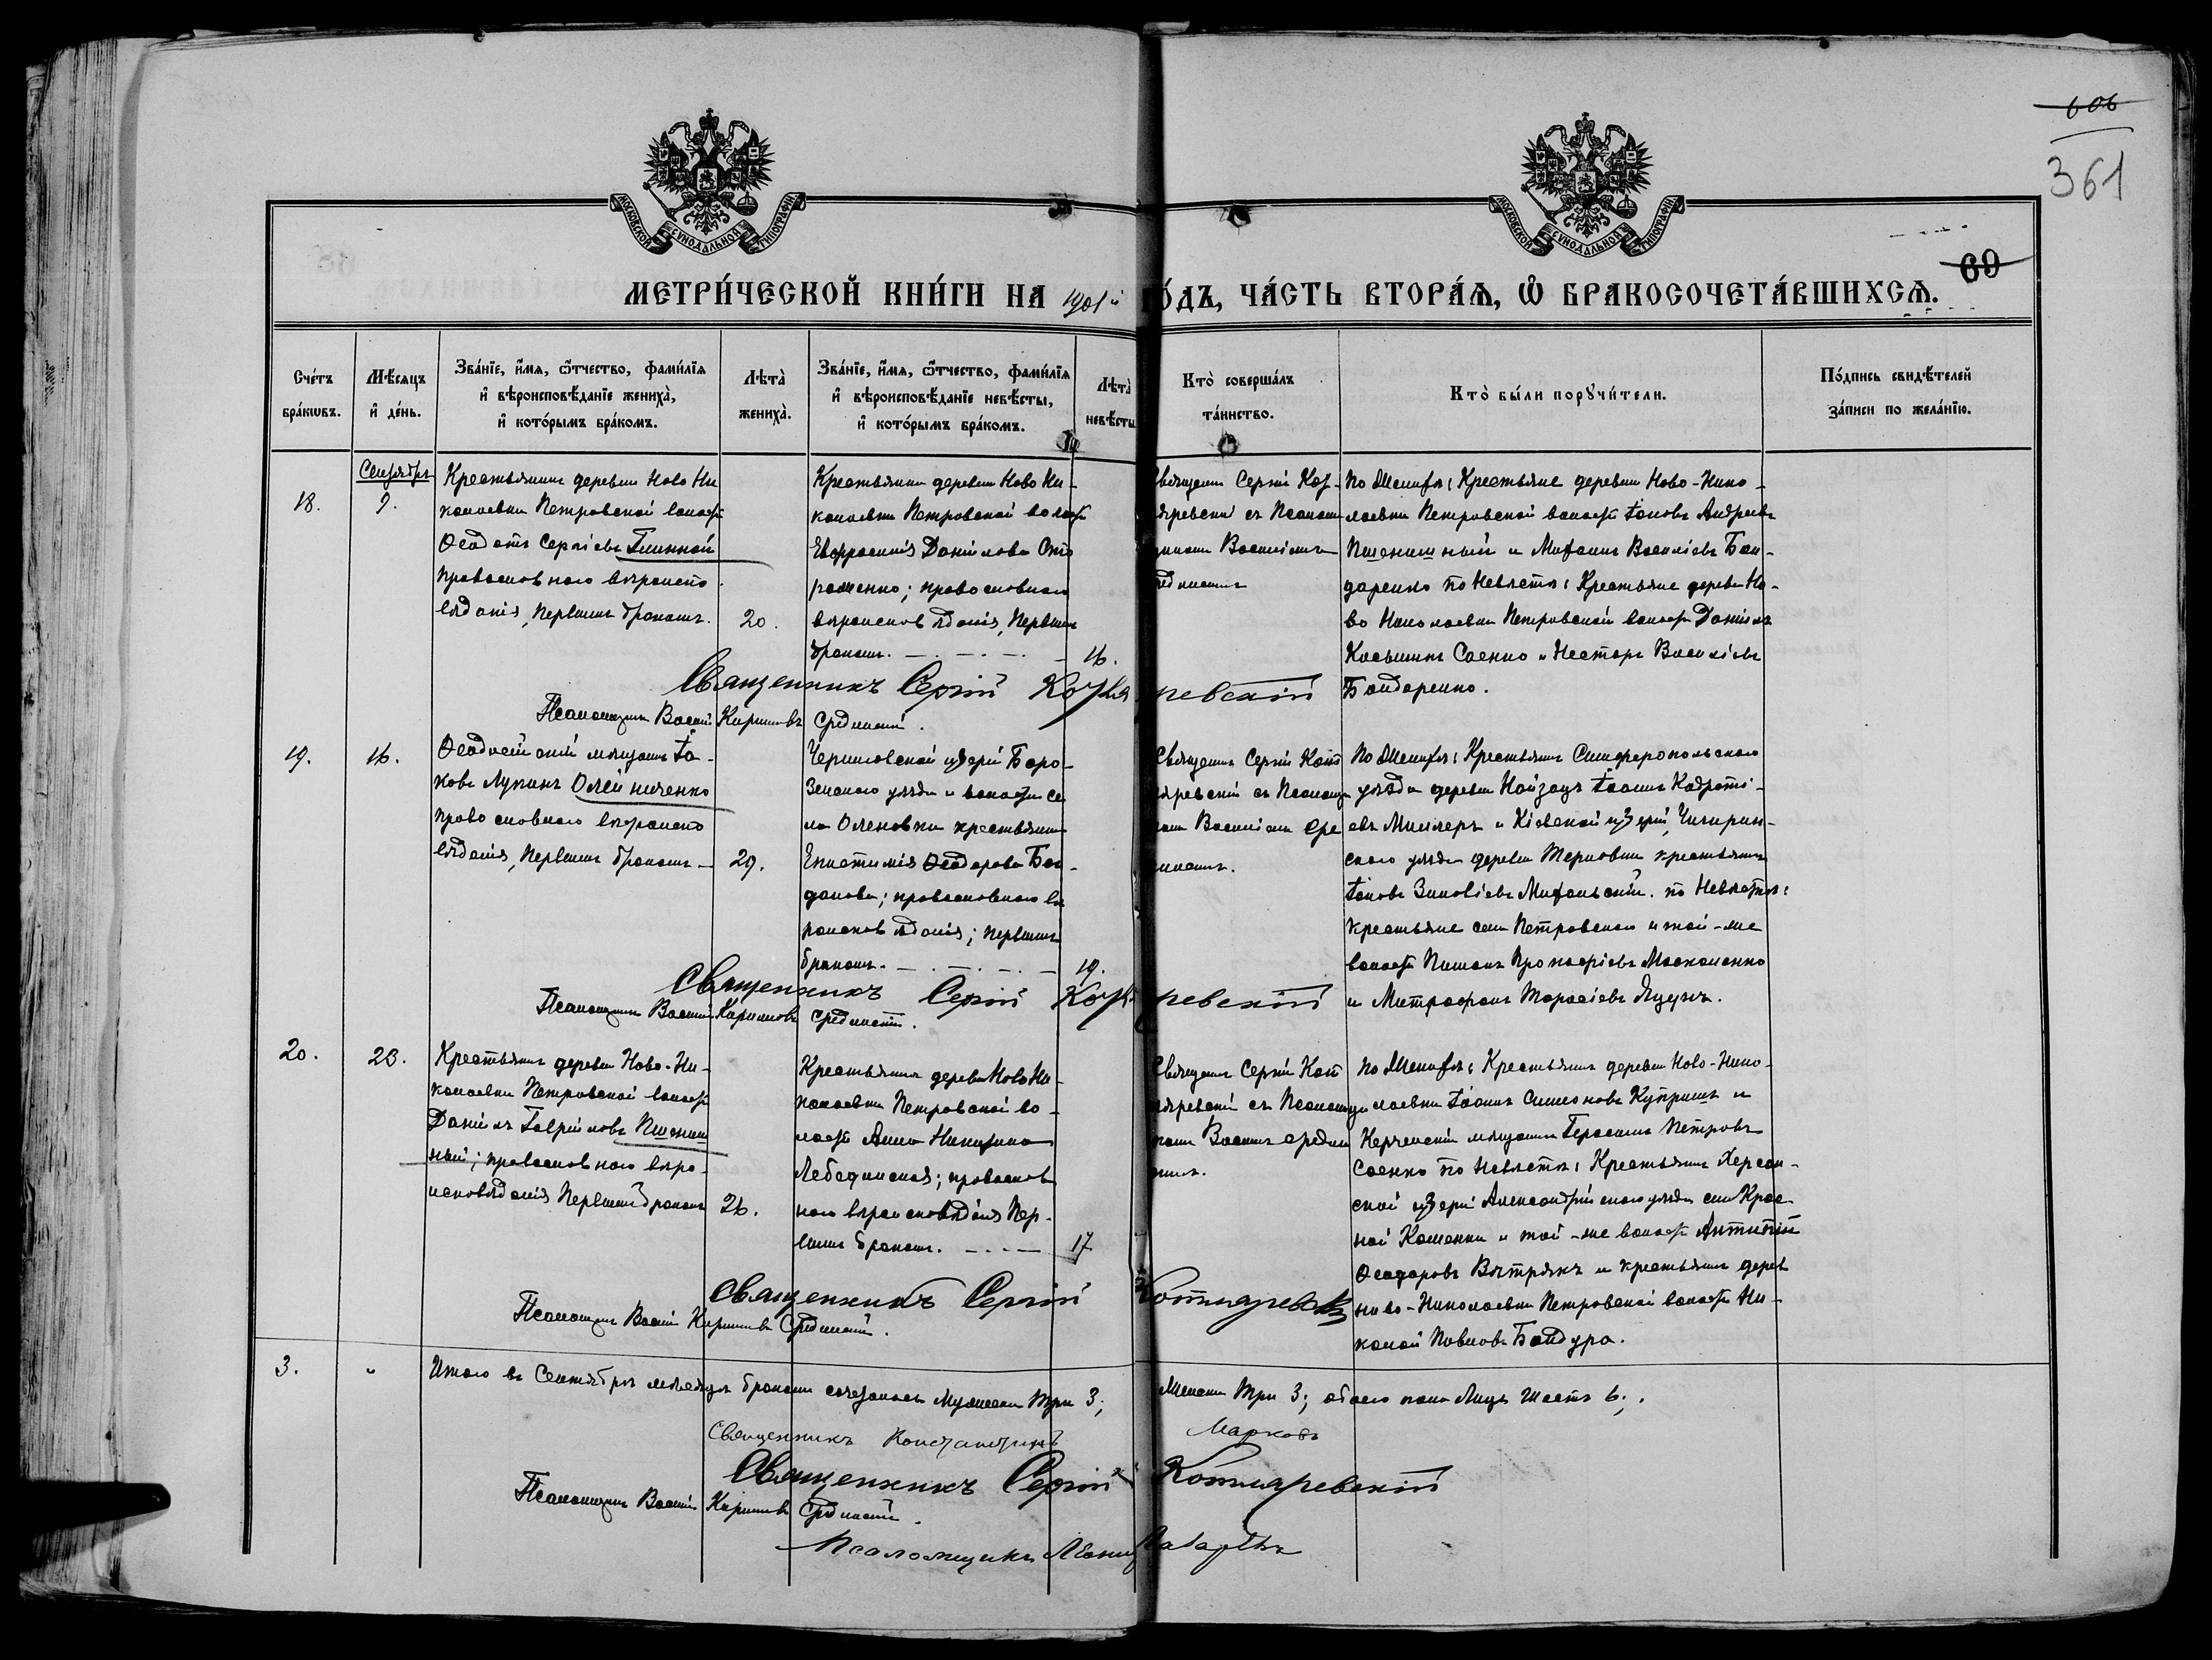 606
361
69
МОСКОВСКОЙ СѴНОДАЛЬНОЙ ТИПОГРАФІИ
МОСКОВСКОЙ СѴНОДАЛЬНОЙ ТИПОГРАФІИ
МЕТРИ́ЧЕСКОЙ КНИ́ГИ НА 1901й ГО́ДЪ, ЧА́СТЬ ВТОРА́Ѧ, Ѽ БРАКОСОЧЕТА́ВШИХСѦ.
Сче́тъ бра́кѡвъ.
Мѣ́сяцъ и҆ де́нь.
Зва́нїе, и҆́мѧ, ѻ҆́тчество, фамилі́ѧ
и҆ вѣроисповѣ́данїе жениха̀,
и҆ кото́рымъ бра́комъ.
Лѣта̀ жениха̀.
Зва́нїе, и҆́мѧ, ѻ҆́тчество, фамилі́ѧ
и҆ вѣроисповѣ́данїе невѣ́сты,
и҆ кото́рымъ бра́комъ.
Лѣта̀ невѣ́сты
Кто̀ соверша́лъ та́инство.
Кто̀ бы́ли порꙋчи́тели.
По́дпись свидѣ́телей за́писи по жела́нїю.
18.
Сентябрь
9.
Крестьянинъ деревни Ново Ни
колаевки Петровской волости
Ѳеодотъ Сергіевъ Глинной
православнаго вѣроиспо
вѣданія, первымъ бракомъ.
20.
Крестьянка деревни Ново Ни-
колаевки Петровской волости
Евфросинія Данилова
православнаго
вѣроисповѣданія, первымъ
бракомъ.
16.
Священникъ Сергій Кот-
ляревскій съ Псалом
щикомъ Василіемъ
Срединскимъ
По Женихѣ: Крестьяне деревни Ново-Нико-
лаевки Петровской волости Іаковъ Андреевъ
Пшенишный и Михаилъ Василіевъ Бон-
даренко по Невѣстѣ: Крестьяне деревни Но-
во Николаевки Петровской волости Даніилъ
Косьминъ Саенко и Несторъ Василіевъ
Бондаренко.
Священникъ Сергій Котляревскій
Псаломщикъ Василій Кирилловъ Срединскій.
19.
16.
Ѳеодосійскій мѣщанинъ Іа-
ковъ Лукинъ Олейниченко
православнаго вѣроиспо
вѣданія, первымъ бракомъ
29.
Черниговской губерніи Бор-
зенскаго уѣзда и волости се
ла Оленовки крестьянка
Епистимія Ѳеодорова Бог-
данова; православнаго вѣ
роисповѣданія; первымъ
бракомъ.
19.
Священникъ Сергій Кот
ляревскій съ Псаломщи
комъ Василіемъ Сре
динскимъ.
По Женихѣ: Крестьянинъ Симферопольскаго
уѣзда деревни Нойзацъ Іоаннъ Кодрати-
евъ Миллеръ и Кіевской губерніи, Чигирин-
скаго уѣзда деревни Терновки крестьянинъ
Іаковъ Зиновіевъ Михальскій. по Невѣстѣ:
крестьяне села Петровскаго и той-же
волости Пименъ Прокофіевъ Москаленко
и Митрофанъ Тарасіевъ Яцунъ.
Священникъ Сергій Котляревскій
Псаломщикъ Василій Кирилловъ Срединскій.
20.
23.
Крестьянинъ деревни Ново-Ни-
колаевки Петровской волости
Даніилъ Гавріиловъ Пшениш
ный; православнаго вѣро-
исповѣданія первымъ бракомъ
26.
Крестьянка деревни Ново Ни-
колаевки Петровской во-
лости Анна Никитина
Лебединская; православ
наго вѣроисповѣданія пер-
вымъ бракомъ.
17
Священникъ Сергій Кот
ляревскій съ Псаломщи
комъ Василіемъ Средин
скимъ.
По Женихѣ: Крестьянинъ деревни Ново-Нико-
лаевки Іоаннъ Симеоновъ Купришъ и
Керченскій мѣщанинъ Герасимъ Петровъ
Саенко по Невѣстѣ: Крестьянинъ Херсон-
ской губерніи Александрійскаго уѣзда села Крас-
ной Каменки и той-же волости Антипій
Ѳеодоровъ Вѣтрякъ и крестьянинъ дерев
Ново-Николаевки Петровской волости Ни-
колай Павловъ Бандура.
Священникъ Сергій Котляревскій
Псаломщикъ Василій Кирилловъ Срединскій.
3. " Итого въ Сентябрѣ мѣсяцѣ бракомъ сочеталось Мужеска Три 3; Женска Три 3; обоего пола Лицъ Шесть 6;.
Священникъ Константинъ Марковъ
Священникъ Сергій Котляревскій
Псаломщикъ Василій Кирилловъ Срединскій.
Псаломщикъ